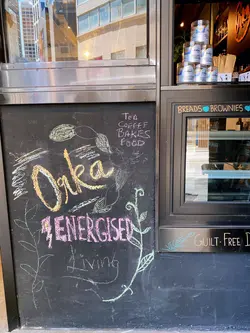 TEA
COFFEE
BAKES
FOOD
Orka
ENERGISED
Living
BREADS BROWNIES
GUILT-FREE